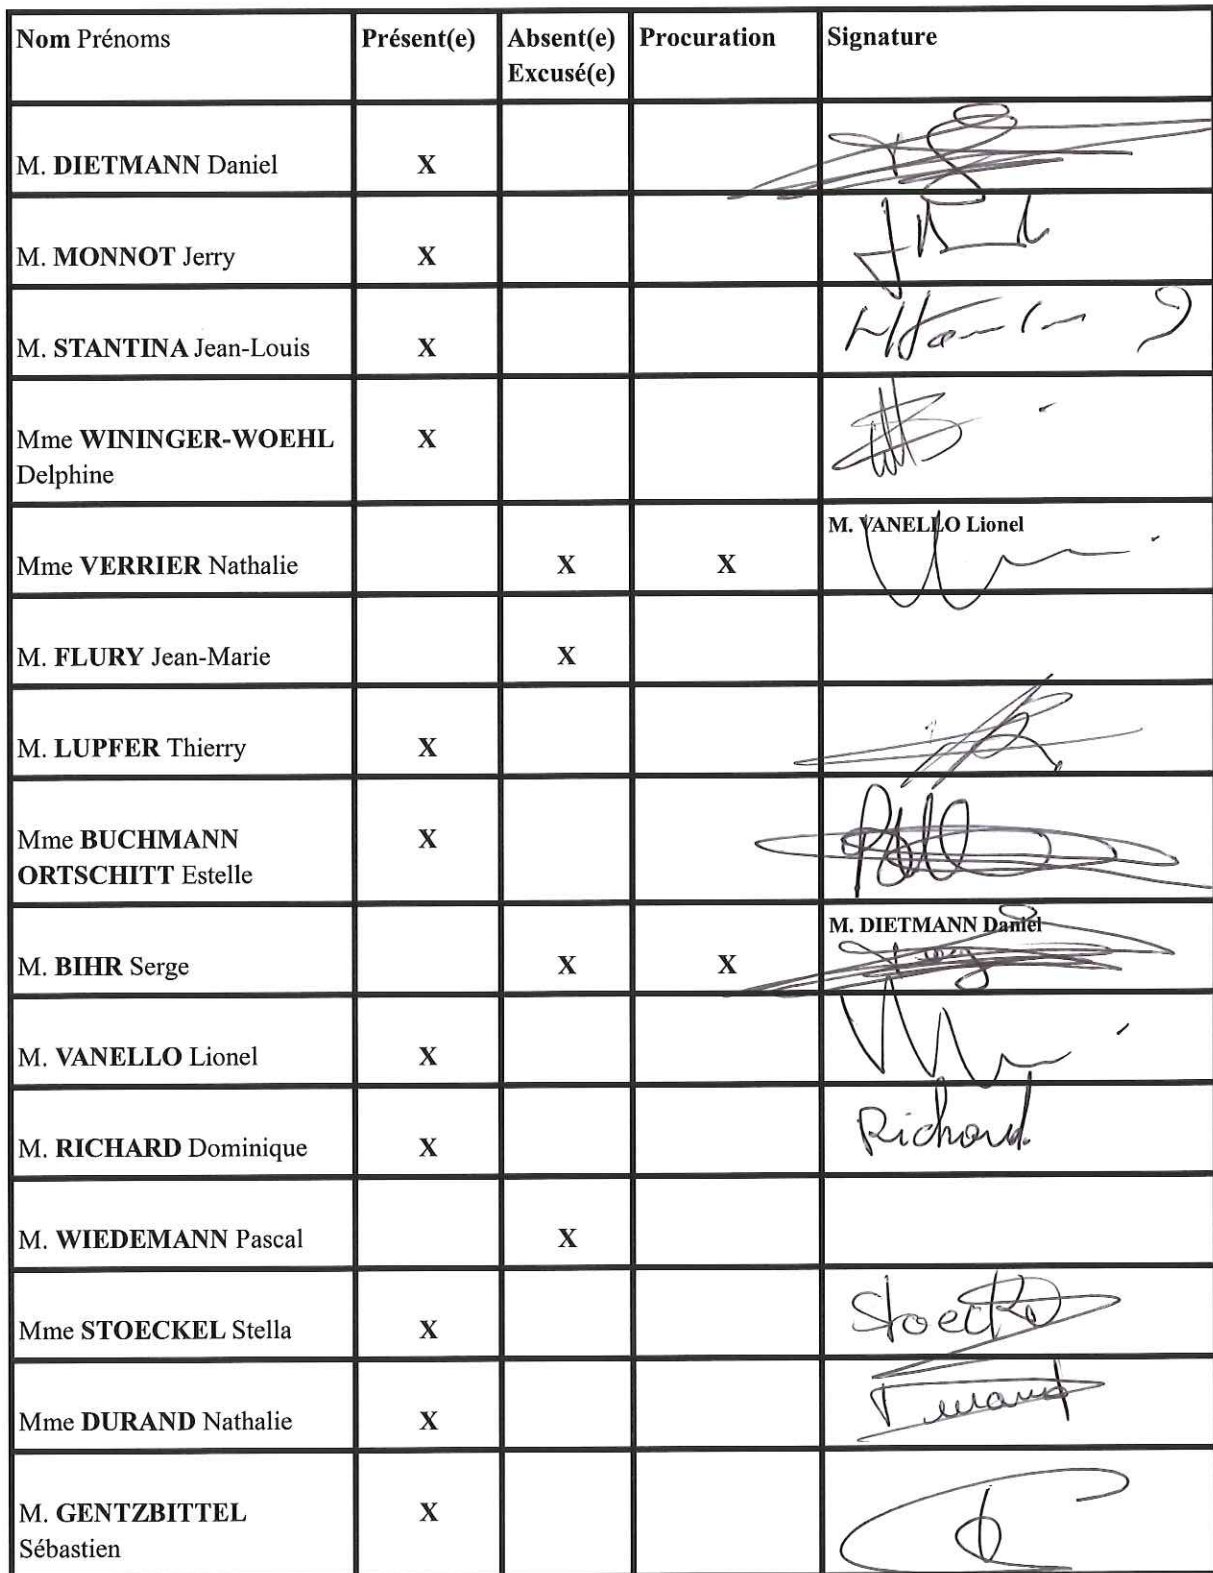 Nom Prénoms Présent(e) Absent(e) Procuration Signature
Excusé(e)
M. DIETMANN Daniel X
M. MONNOT Jerry X
M. STANTINA Jean-Louis X
Mme WININGER-WOEHL X
Delphine
M. VANELLO Lionel
Mme VERRIER Nathalie X X
M. FLURY Jean-Marie X
M. LUPFER Thierry X
Mme BUCHMANN X
ORTSCHITT Estelle
M. DIETMANN Daniel
M. BIHR Serge X X
M. VANELLO Lionel X
M. RICHARD Dominique X Richard
M. WIEDEMANN Pascal X
Mme STOECKEL Stella X Stoeckel
Mme DURAND Nathalie X Durand
M. GENTZBITTEL X
Sébastien